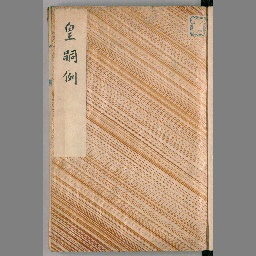 皇嗣例